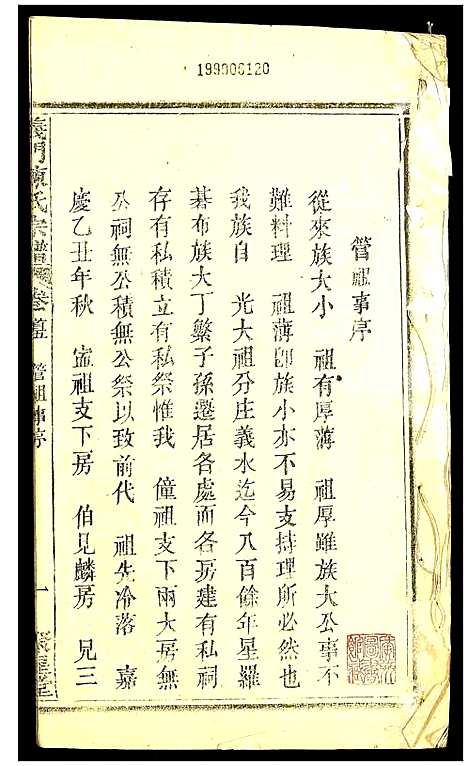 199000120
管祖事序
從來族大小　祖有厚薄　祖厚雖族大公事不
難料理　祖薄卽族小亦不易支持理所必然也
我族自　光大祖分庄義水迄今八百餘年星羅
碁布族大丁繁子孫遷居各處而各房建有私祠
存有私積立有私祭惟我　僮祖支下兩大房無
公祠無公積無公祭以致前代　祖先冷落　嘉
慶乙丑年秋　祖支下房　伯見麟房　兄三
義門陳氏宗譜　卷首五　管祖事序　一